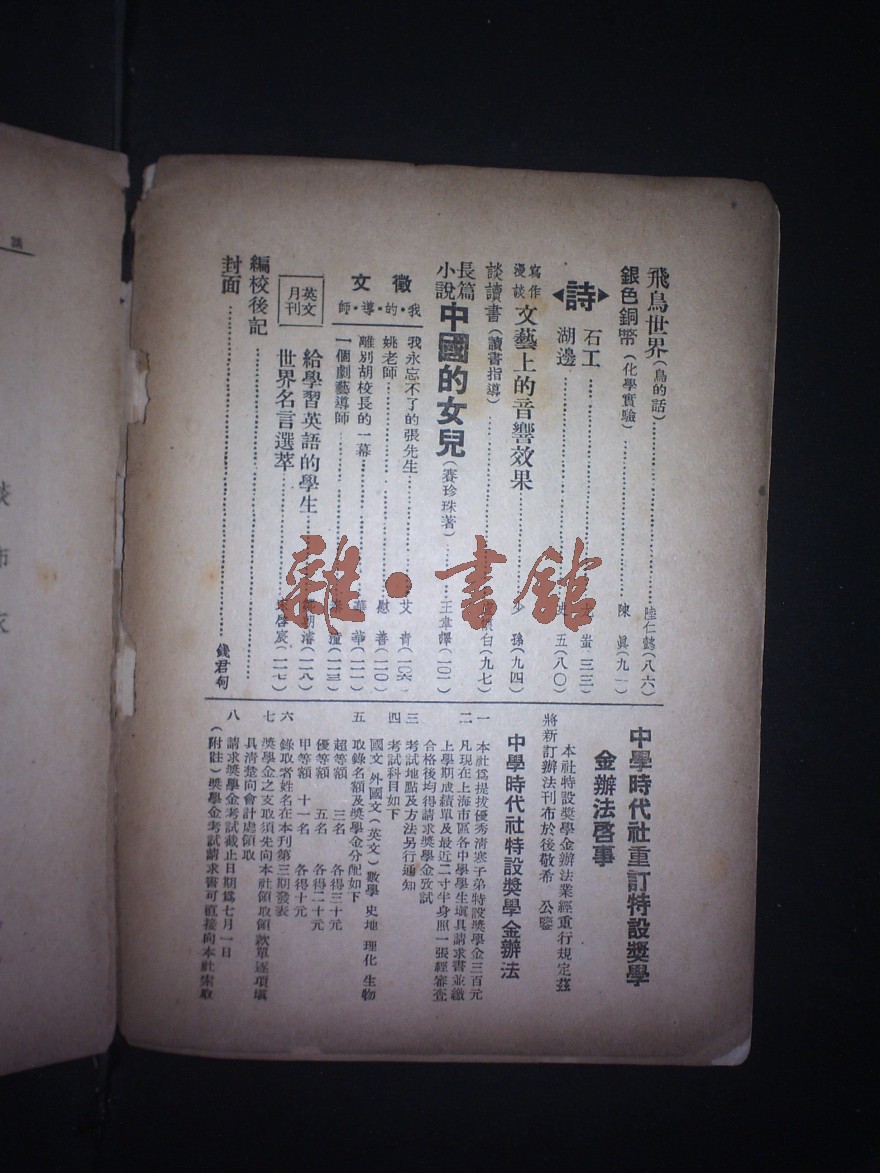 飛鳥世界(鳥的話)……陸仁懿(八六)
銀色銅幣(化學實驗)……陳 眞(九一)
詩
石工……三三
湖邊……五(八〇)
寫作漫談 文藝上的音響效果……少 孫(九四)
談讀書(讀書指導)……白(九七)
長篇小說 中國的女兒(賽珍珠著)……王韋譯(一〇一)
徵文
我·的·導·師
我永忘不了的張先生……艾 青(一〇六)
姚老師……慰 善(一一〇)
離別胡校長的一幕……華 華(一一一)
一個劇藝導師……(一一三)
英文月刊
給學習英語的學生……(一一八)
世界名言選萃……(一一七)
編校後記
封面……錢君匋
中學時代社重訂特設奬學
金辦法啓事
本社特設奬學金辦法業經重行規定茲
將新訂辦法刊布於後敬希 公鑒
中學時代社特設奬學金辦法
一 本社爲提拔優秀清寒子弟特設奬學金三百元
二 凡現在上海市區各中學學生塡具請求書並繳
上學期成績單及最近二寸半身照一張經審查
合格後均得請求奬學金攷試
三 考試地點及方法另行通知
四 考試科目如下
國文 外國文(英文) 數學 史地 理化 生物
五 取錄名額及奬學金分配如下
超等額 三名 各得三十元
優等額 五名 各得二十元
甲等額 十一名 各得十元
六 錄取者姓名在本刊第三期發表
七 奬學金之支取須先向本社領取領款單逐項塡
具清楚向會計處領取
八 請求奬學金考試截止日期爲七月一日
(附註)奬學金考試請求書可直接向本社索取
雜·書館